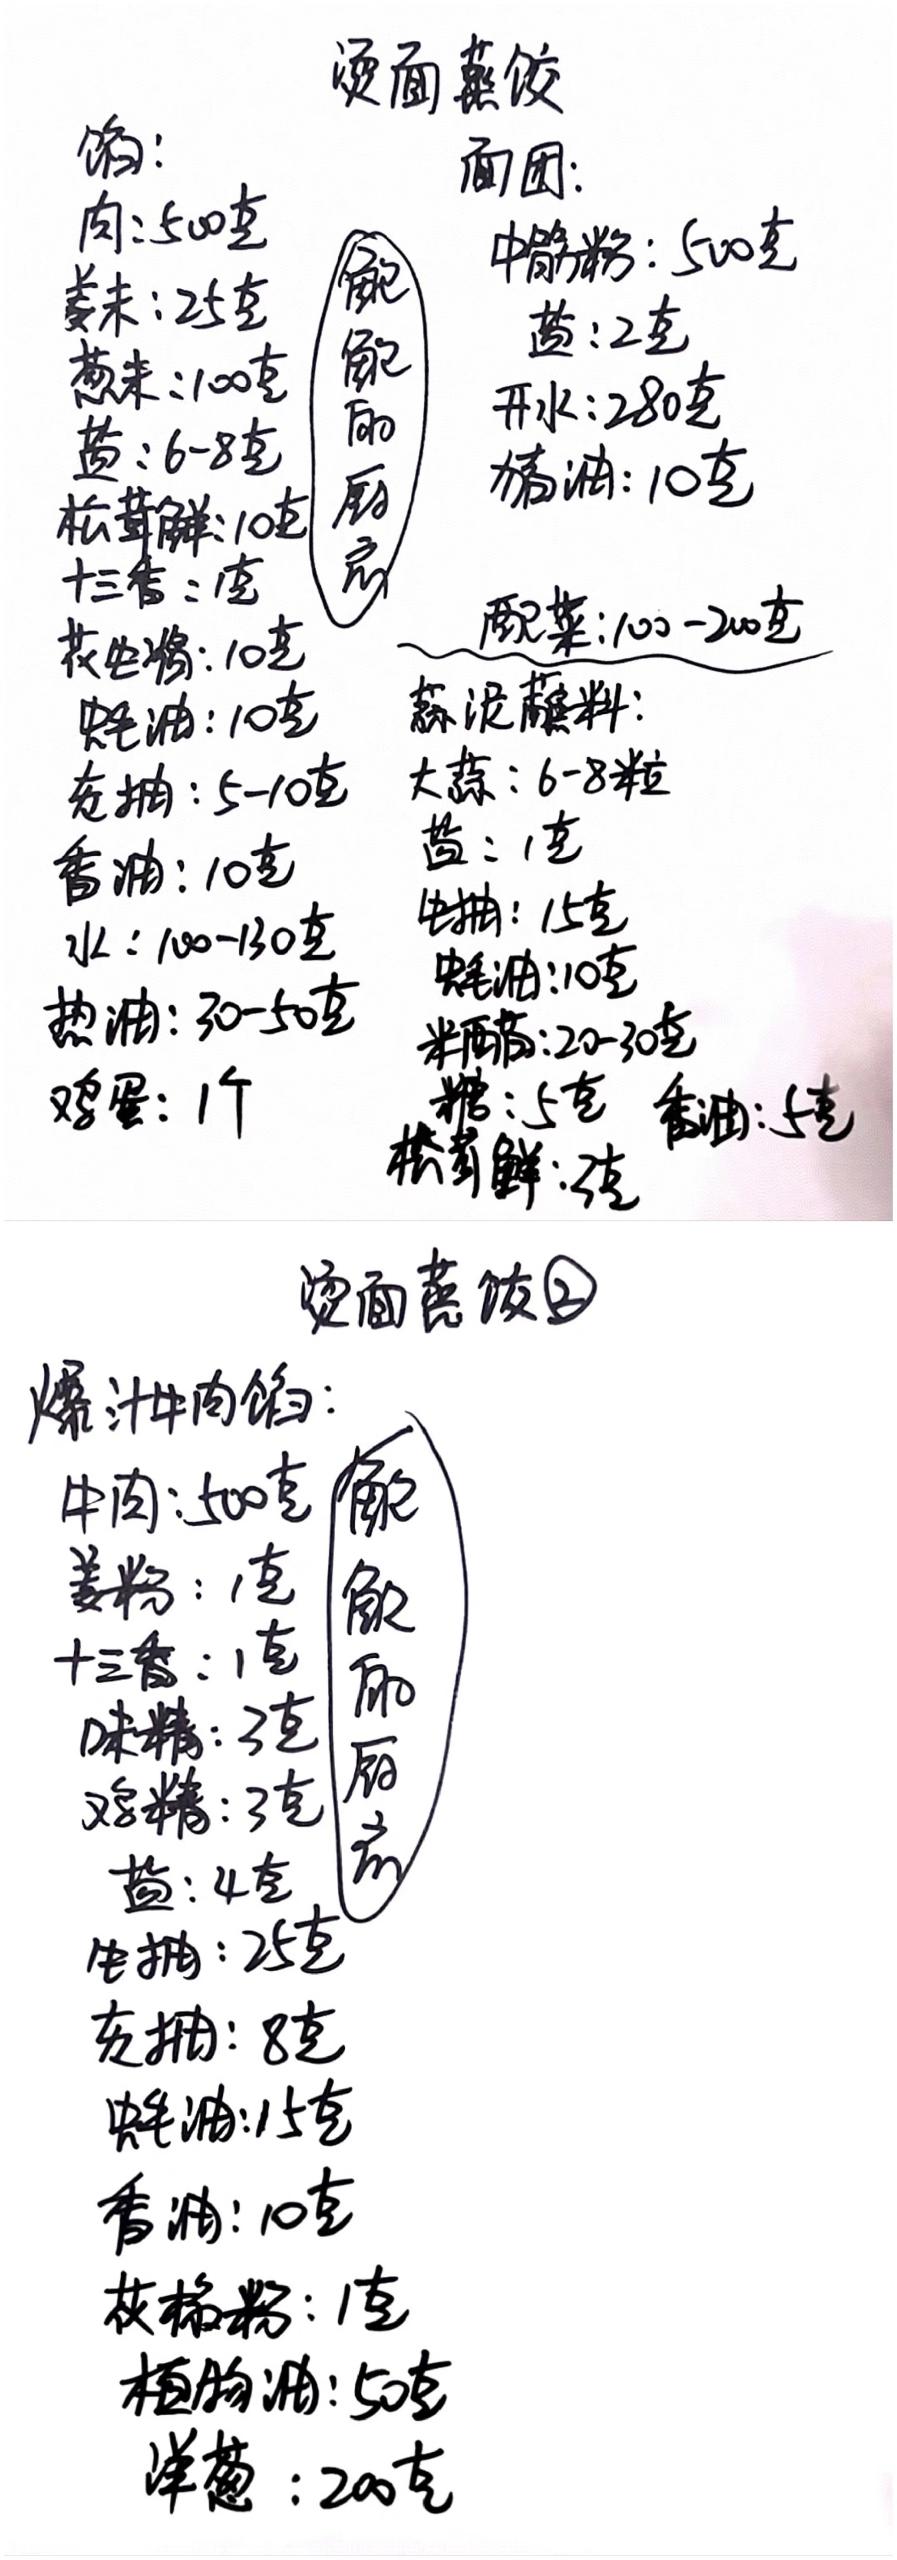 烫面蒸饺
馅:
肉:500克
姜末:25克
葱末:100克
盐:6-8克
松茸鲜:10克
十三香:1克
花生酱:10克
蚝油:10克
老抽:5-10克
香油:10克
水:100-130克
热油:30-50克
鸡蛋:1个
的厨房
面团:
中筋粉:500克
盐:2克
开水:280克
猪油:10克
配菜:100-200克
蒜泥蘸料:
大蒜:6-8粒
盐:1克
生抽:15克
蚝油:10克
米醋:20-30克
糖:5克
香油:5克
松茸鲜:3克
烫面蒸饺②
爆汁牛肉馅:
牛肉:500克
姜粉:1克
十三香:1克
味精:3克
鸡精:3克
盐:4克
生抽:25克
老抽:8克
蚝油:15克
香油:10克
花椒粉:1克
植物油:50克
洋葱:200克
的厨房